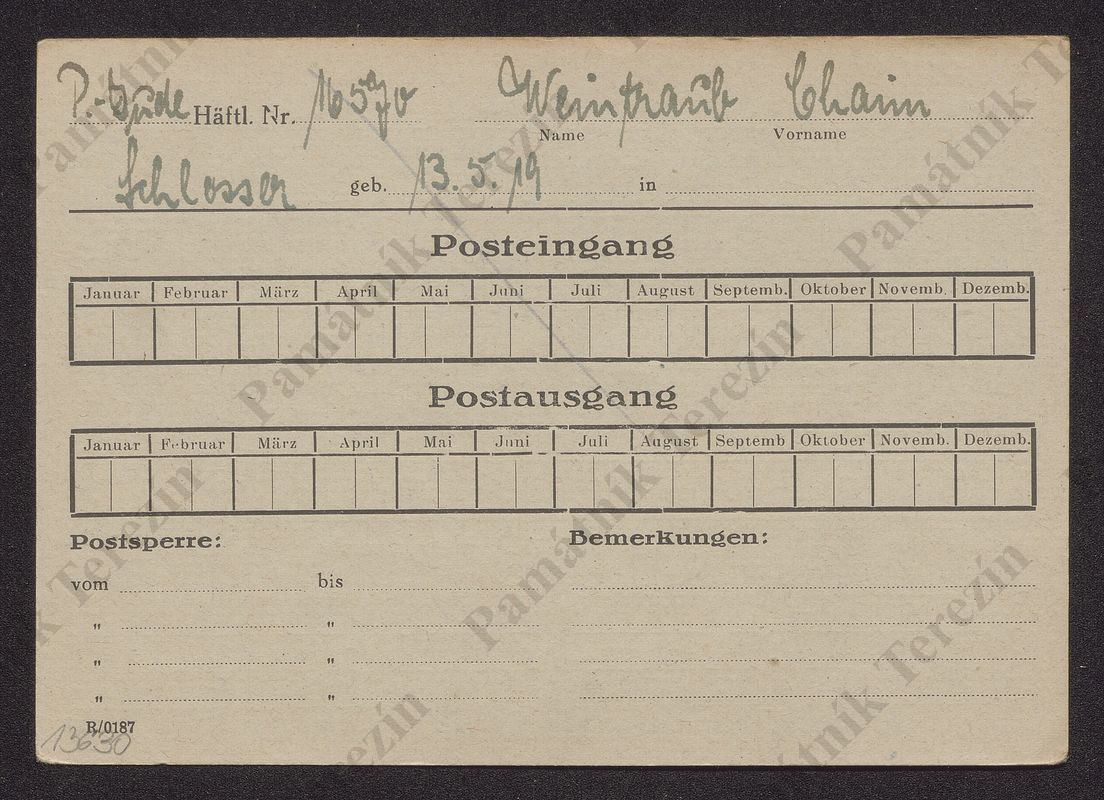 P.-Jude Häftl. Nr. 16570 Weintraub Chaim
Name Vorname
Schlosser geb. 13.5.19 in
Posteingang
Januar Februar März April Mai Juni Juli August Septemb. Oktober Novemb. Dezemb.
Postausgang
Januar Februar März April Mai Juni Juli August Septemb Oktober Novemb. Dezemb.
Postsperre: Bemerkungen:
vom bis
" "
" "
" "
R/0187
13630
Památník Terezín